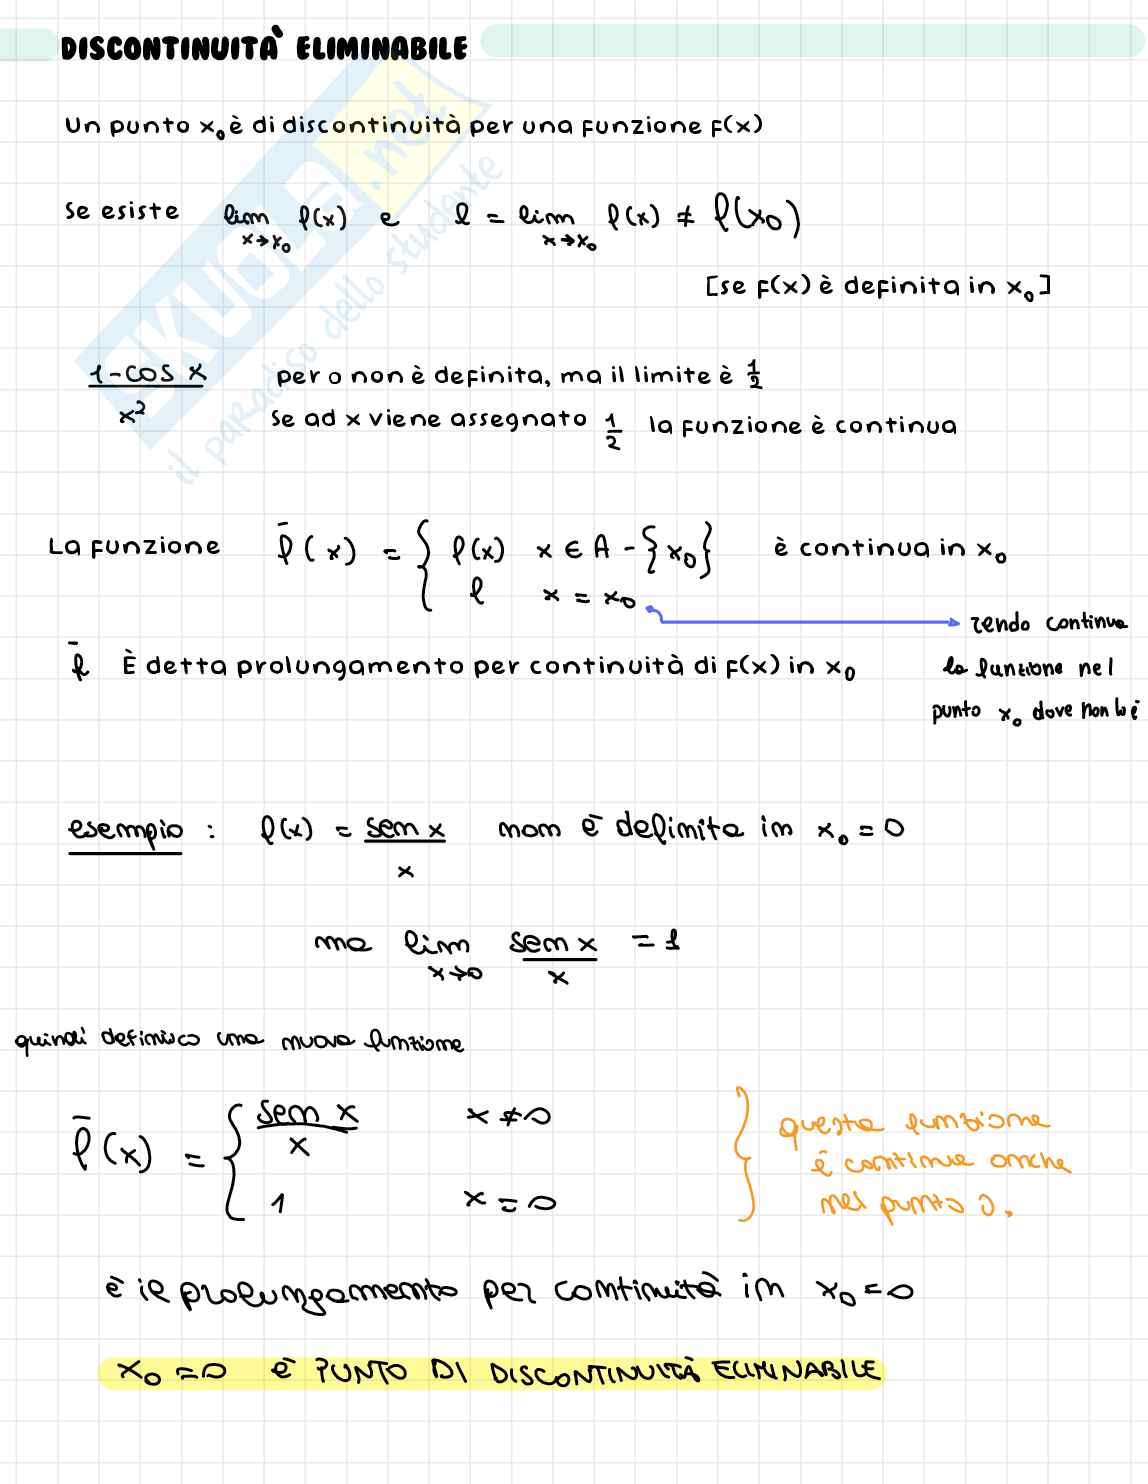 DISCONTINUITÀ ELIMINABILE
Un punto x₀ è di discontinuità per una funzione F(x)
Se esiste lim x→x₀ f(x) e l = lim x→x₀ f(x) ≠ f(x₀)
[se F(x) è definita in x₀]
1-cos x / x² per 0 non è definita, ma il limite è 1/2
Se ad x viene assegnato 1/2 la funzione è continua
La funzione f̄(x) = { f(x) x ∈ A - {x₀} è continua in x₀
l x = x₀
rendo continua
la funzione nel
punto x₀ dove non lo è
f̄ È detta prolungamento per continuità di F(x) in x₀
esempio : f(x) = sen x / x non è definita in x₀ = 0
ma lim x→0 sen x / x = 1
quindi definisco una nuova funzione
f̄(x) = { sen x / x x ≠ 0
1 x = 0
} questa funzione
è continua anche
nel punto 0.
è il prolungamento per continuità in x₀ = 0
x₀ = 0 è PUNTO DI DISCONTINUITÀ ELIMINABILE
SKUOLA.net
il paradiso dello studente